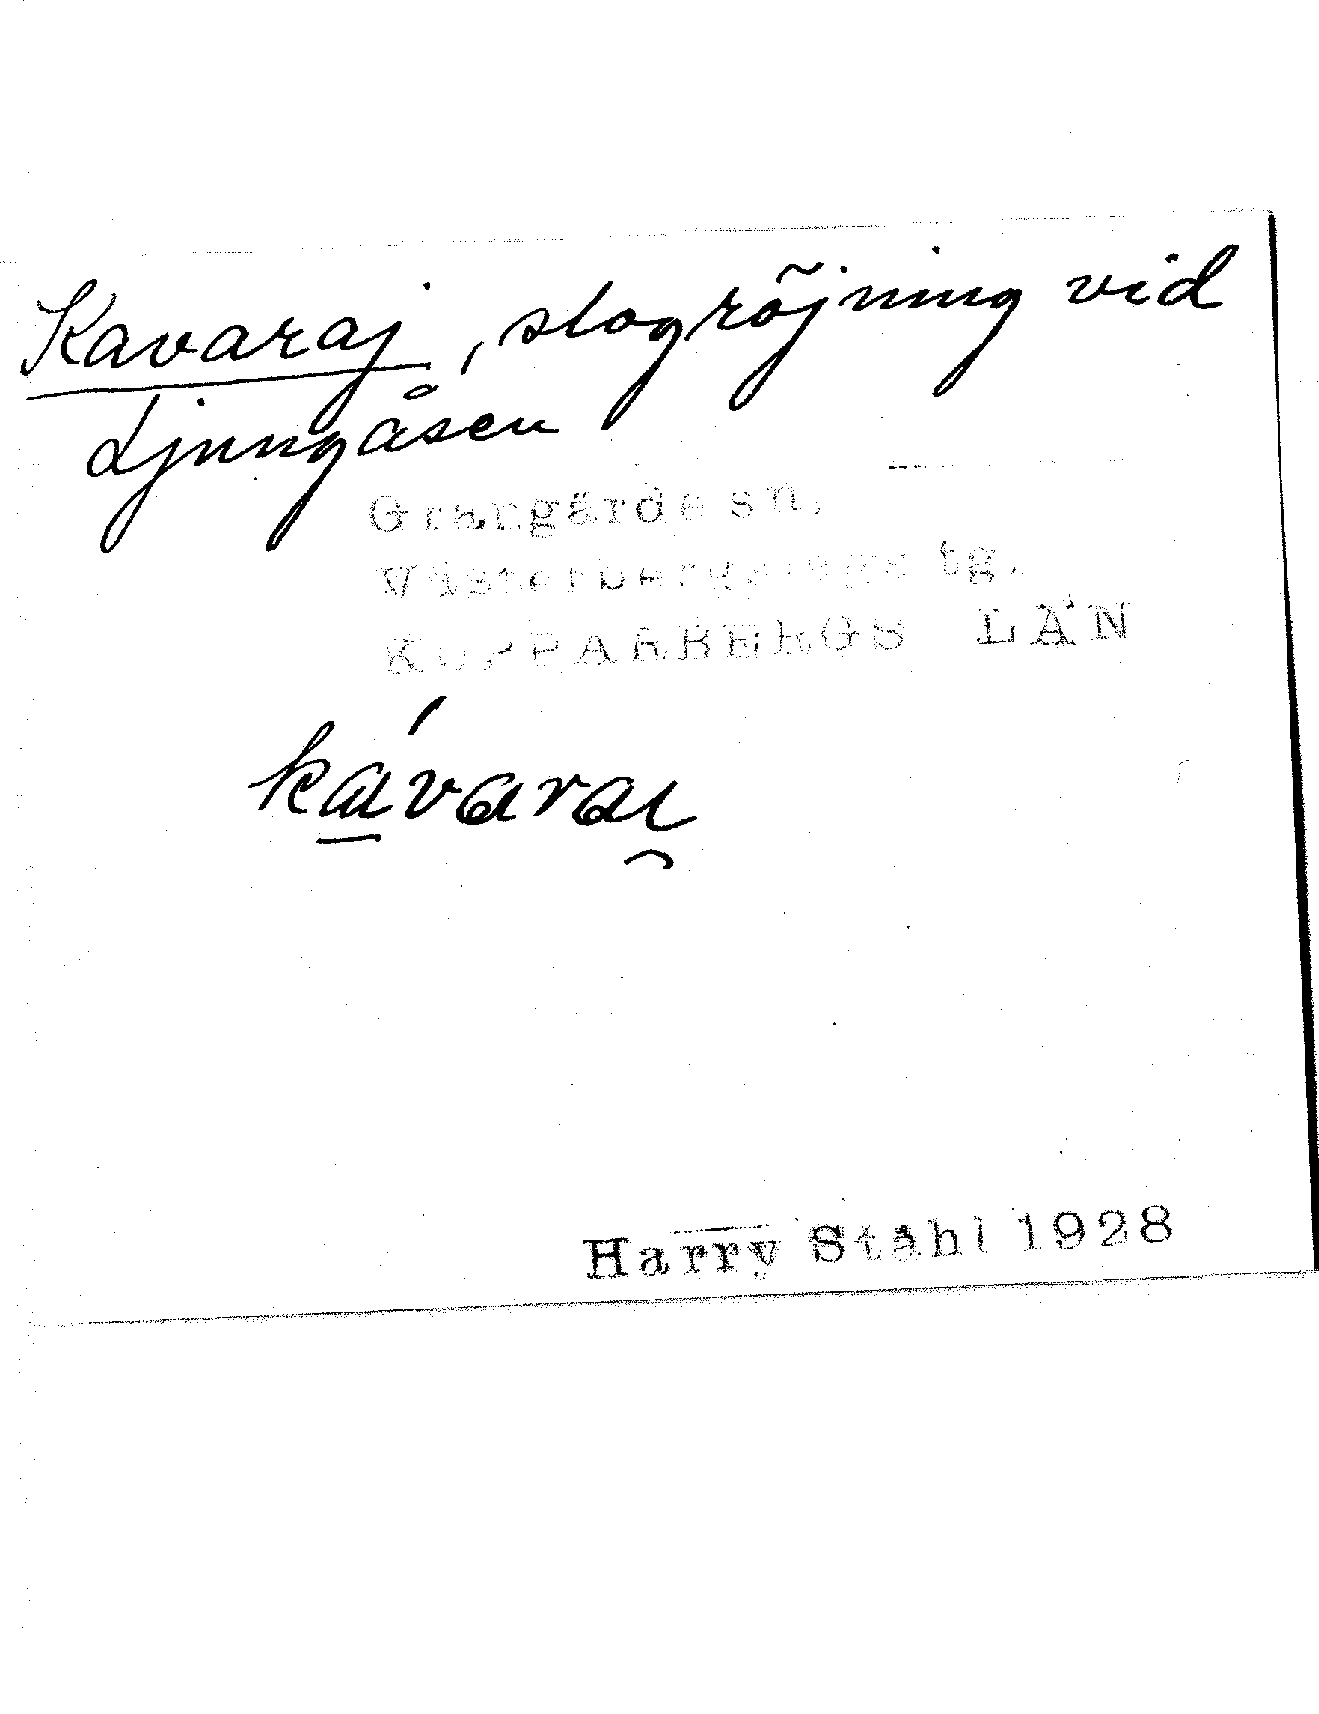 Kavaraj, slogröjning vid
Ljungåsen
Grangärde sn.
Västerbergslags tg.
KOPPARBERGS LÄN
kávarai̯
Harry Ståhl 1928